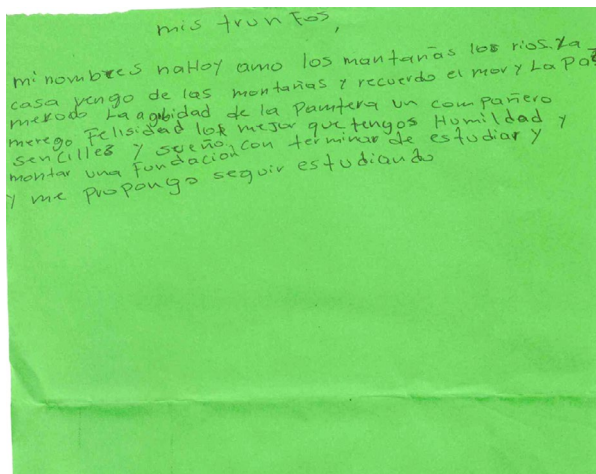 mis trunfos,
mi nombres naHoy amo los mantañas los rios. La
casa vengo de las montañas y recuerdo el mar y La Paz
merodo La agbidad de la Pamtera un compañero
merego Felisidad los mejor que tengos Humildad y
sencilles y sueño con terminar de estudiar y
montar una Fundacion
y me propongo seguir estudiando